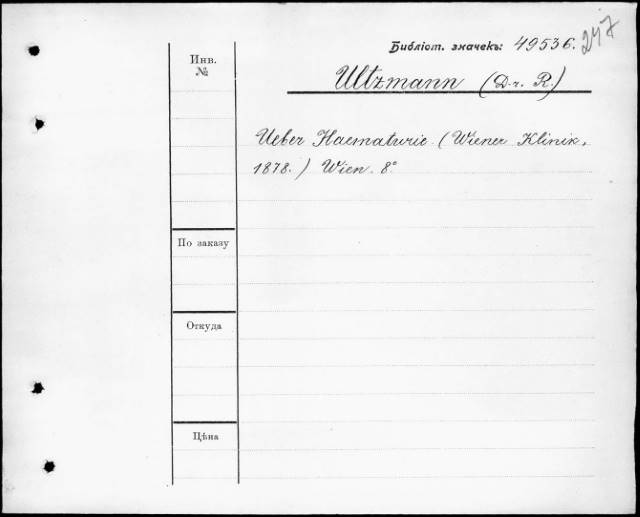 Библіот. значекъ: 49536.
247
Инв.
№
Ultzmann (Dr. R)
Ueber Haematurie. (Wiener Klinik,
1878.) Wien. 8°
По заказу
Откуда
Цѣна